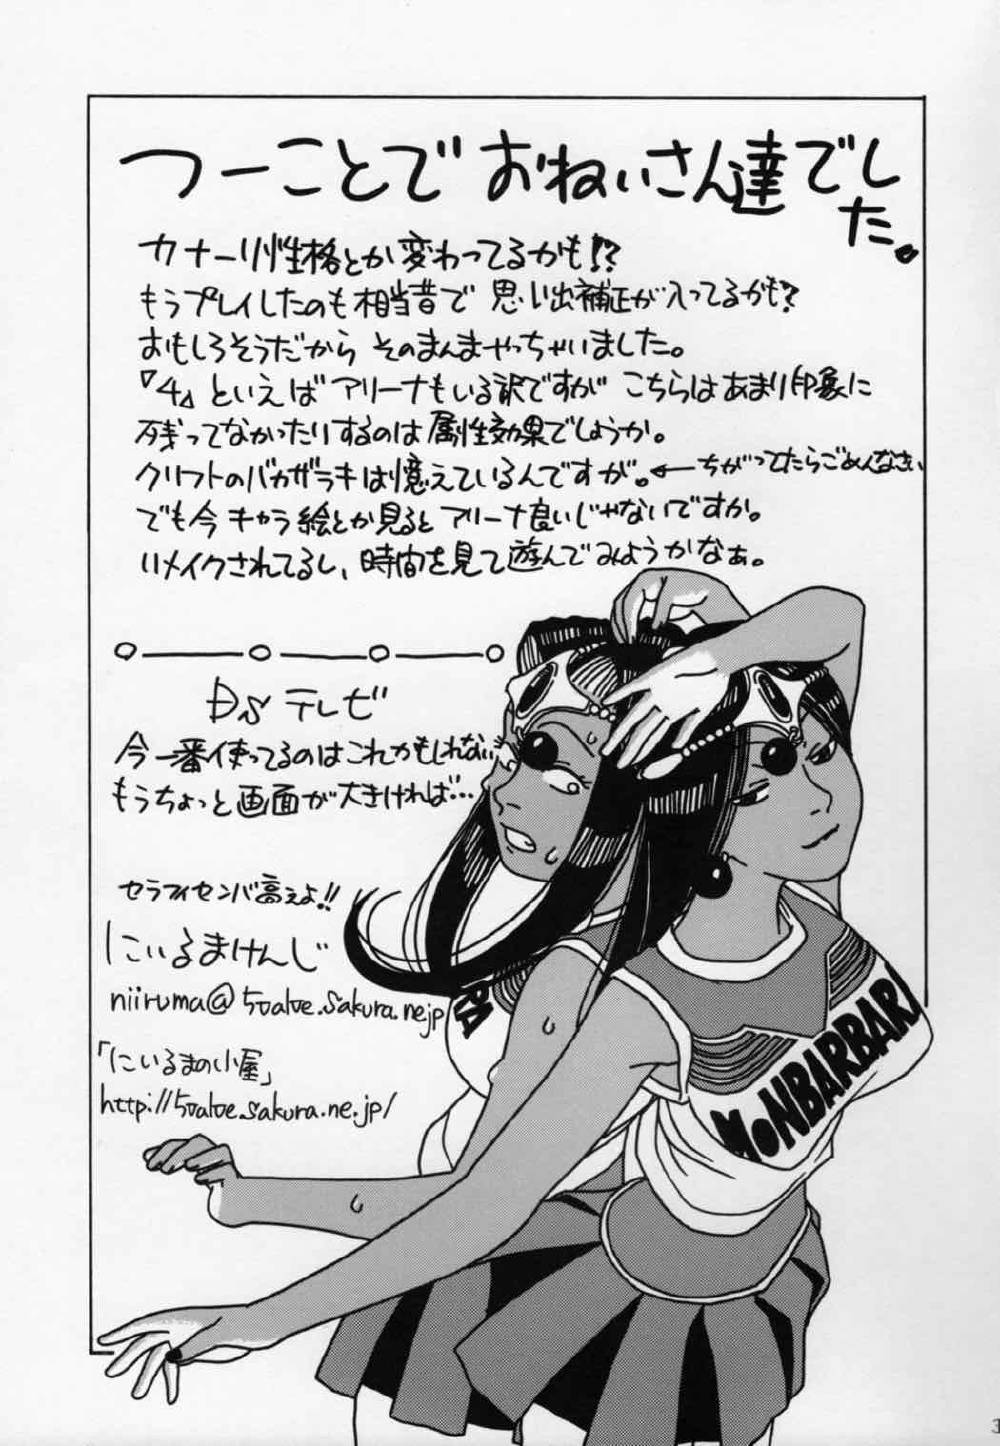 つーことで おねぃさん達でし
た。
カナーリ性格とか変わってるかも!?
もうプレイしたのも相当昔で 思い出補正が入ってるかも?
おもしろそうだから そのまんまやっちゃいました。
『4』といえばアリーナもいる訳ですが こちらはあまり印象に
残ってなかったりするのは属性効果でしょうか。
クリフトのバカザラキは憶えているんですが。←ちがってたらごめんなさい
でも今キャラ絵とか見るとアリーナ良いじゃないですか。
リメイクされてるし、時間を見て遊んでみようかなぁ。
DS テレビ
今一番使ってるのはこれかもしれない
もうちょっと画面が大きければ…
セラフィセンバ高ぇよ!!
にいるまけんじ
niiruma@5value.sakura.ne.jp
「にいるまの小屋」
http://5value.sakura.ne.jp/
RA
MONBARBARA
3